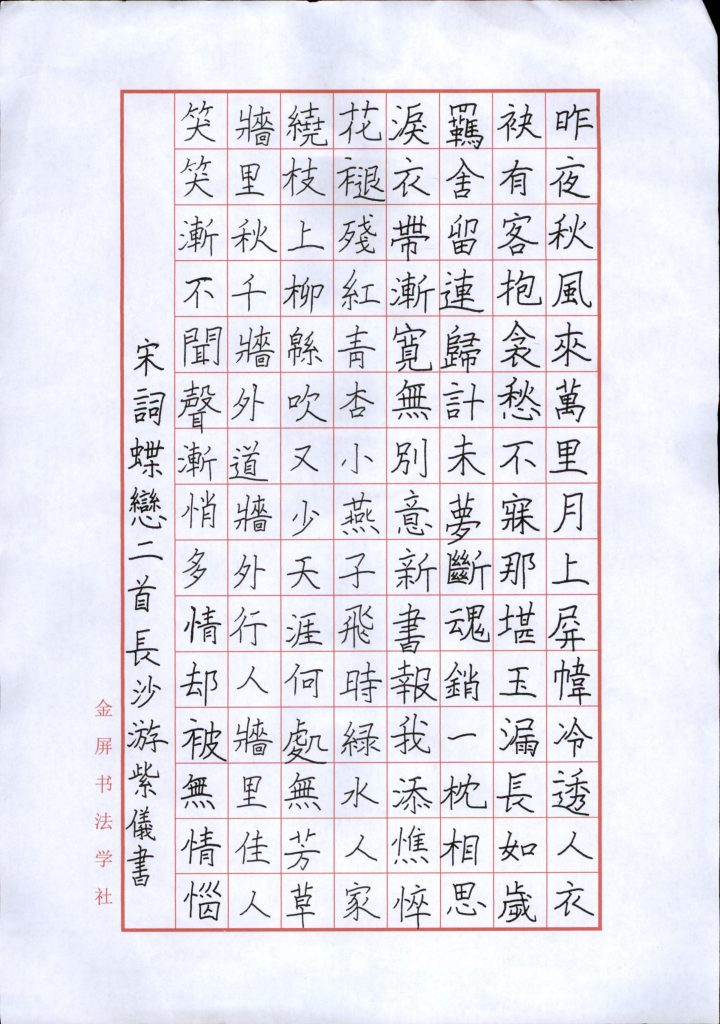 昨夜秋風來萬里月上屏幃冷透人衣
袂有客抱衾愁不寐那堪玉漏長如歲
羈舍留連歸計未夢斷魂銷一枕相思
淚衣帶漸寬無別意新書報我添憔悴
花褪殘紅青杏小燕子飛時緑水人家
繞枝上柳緜吹又少天涯何處無芳草
牆里秋千牆外道牆外行人牆里佳人
笑笑漸不聞聲漸悄多情却被無情惱
宋詞蝶戀二首長沙游紫儀書
金屏书法学社